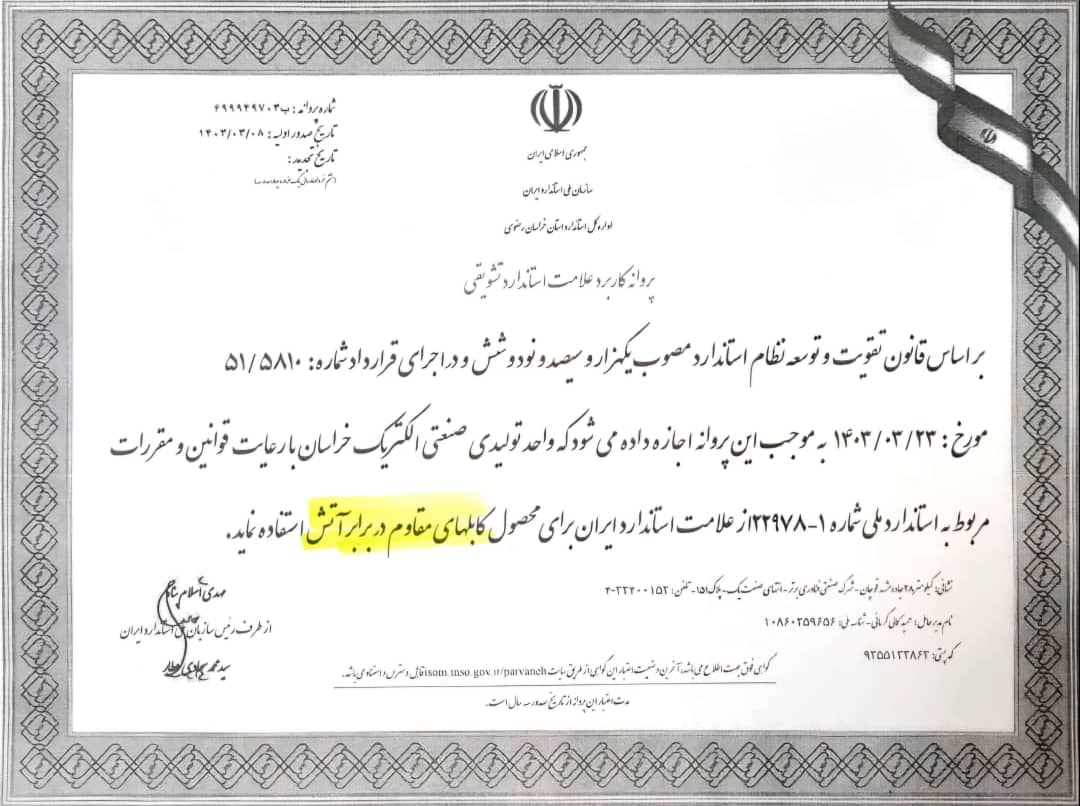 جمهوری اسلامی ایران
سازمان ملی استاندارد ایران
اداره کل استاندارد استان خراسان رضوی
شماره پروانه : ب۴۹۹۹۴۹۷۰۳
تاریخ صدور اولیه : ۱۴۰۳/۰۳/۰۸
تاریخ تجدید :
پروانه کاربرد علامت استاندارد تشویقی
بر اساس قانون تقویت و توسعه نظام استاندارد مصوب یکهزار و سیصد و نود و شش و در اجرای قرارداد شماره : ۵۱/۵۸۱۰
مورخ : ۱۴۰۳/۰۳/۲۳ به موجب این پروانه اجازه داده می شود که واحد تولیدی صنعتی الکتریک خراسان با رعایت قوانین و مقررات
مربوط به استاندارد ملی شماره ۱-۲۲۹۷۸ از علامت استاندارد ایران برای محصول کابلهای مقاوم در برابر آتش استفاده نماید.
نشانی : کیلومتر ۲۸ جاده مشهد قوچان - شهرک صنعتی فناوری برتر - انتهای صنعت یک - پلاک ۱۵۱ - تلفن : ۳۲۴۰۰۱۵۲-۴
نام مدیر عامل : حمید کمالی کرمانی - شناسه ملی : ۱۰۸۶۰۲۵۹۶۵۶
کد پستی : ۹۲۵۵۱۲۳۸۶۳
گواهی فوق جهت اطلاع می باشد، آخرین وضعیت اعتبار این گواهی از طریق سایت isom.inso.gov.ir/parvaneh قابل دسترس و استناد می باشد.
مدت اعتبار این پروانه از تاریخ صدور سه سال است.
مهدی اسلام پناه
از طرف رئیس سازمان ملی استاندارد ایران
سید محمد